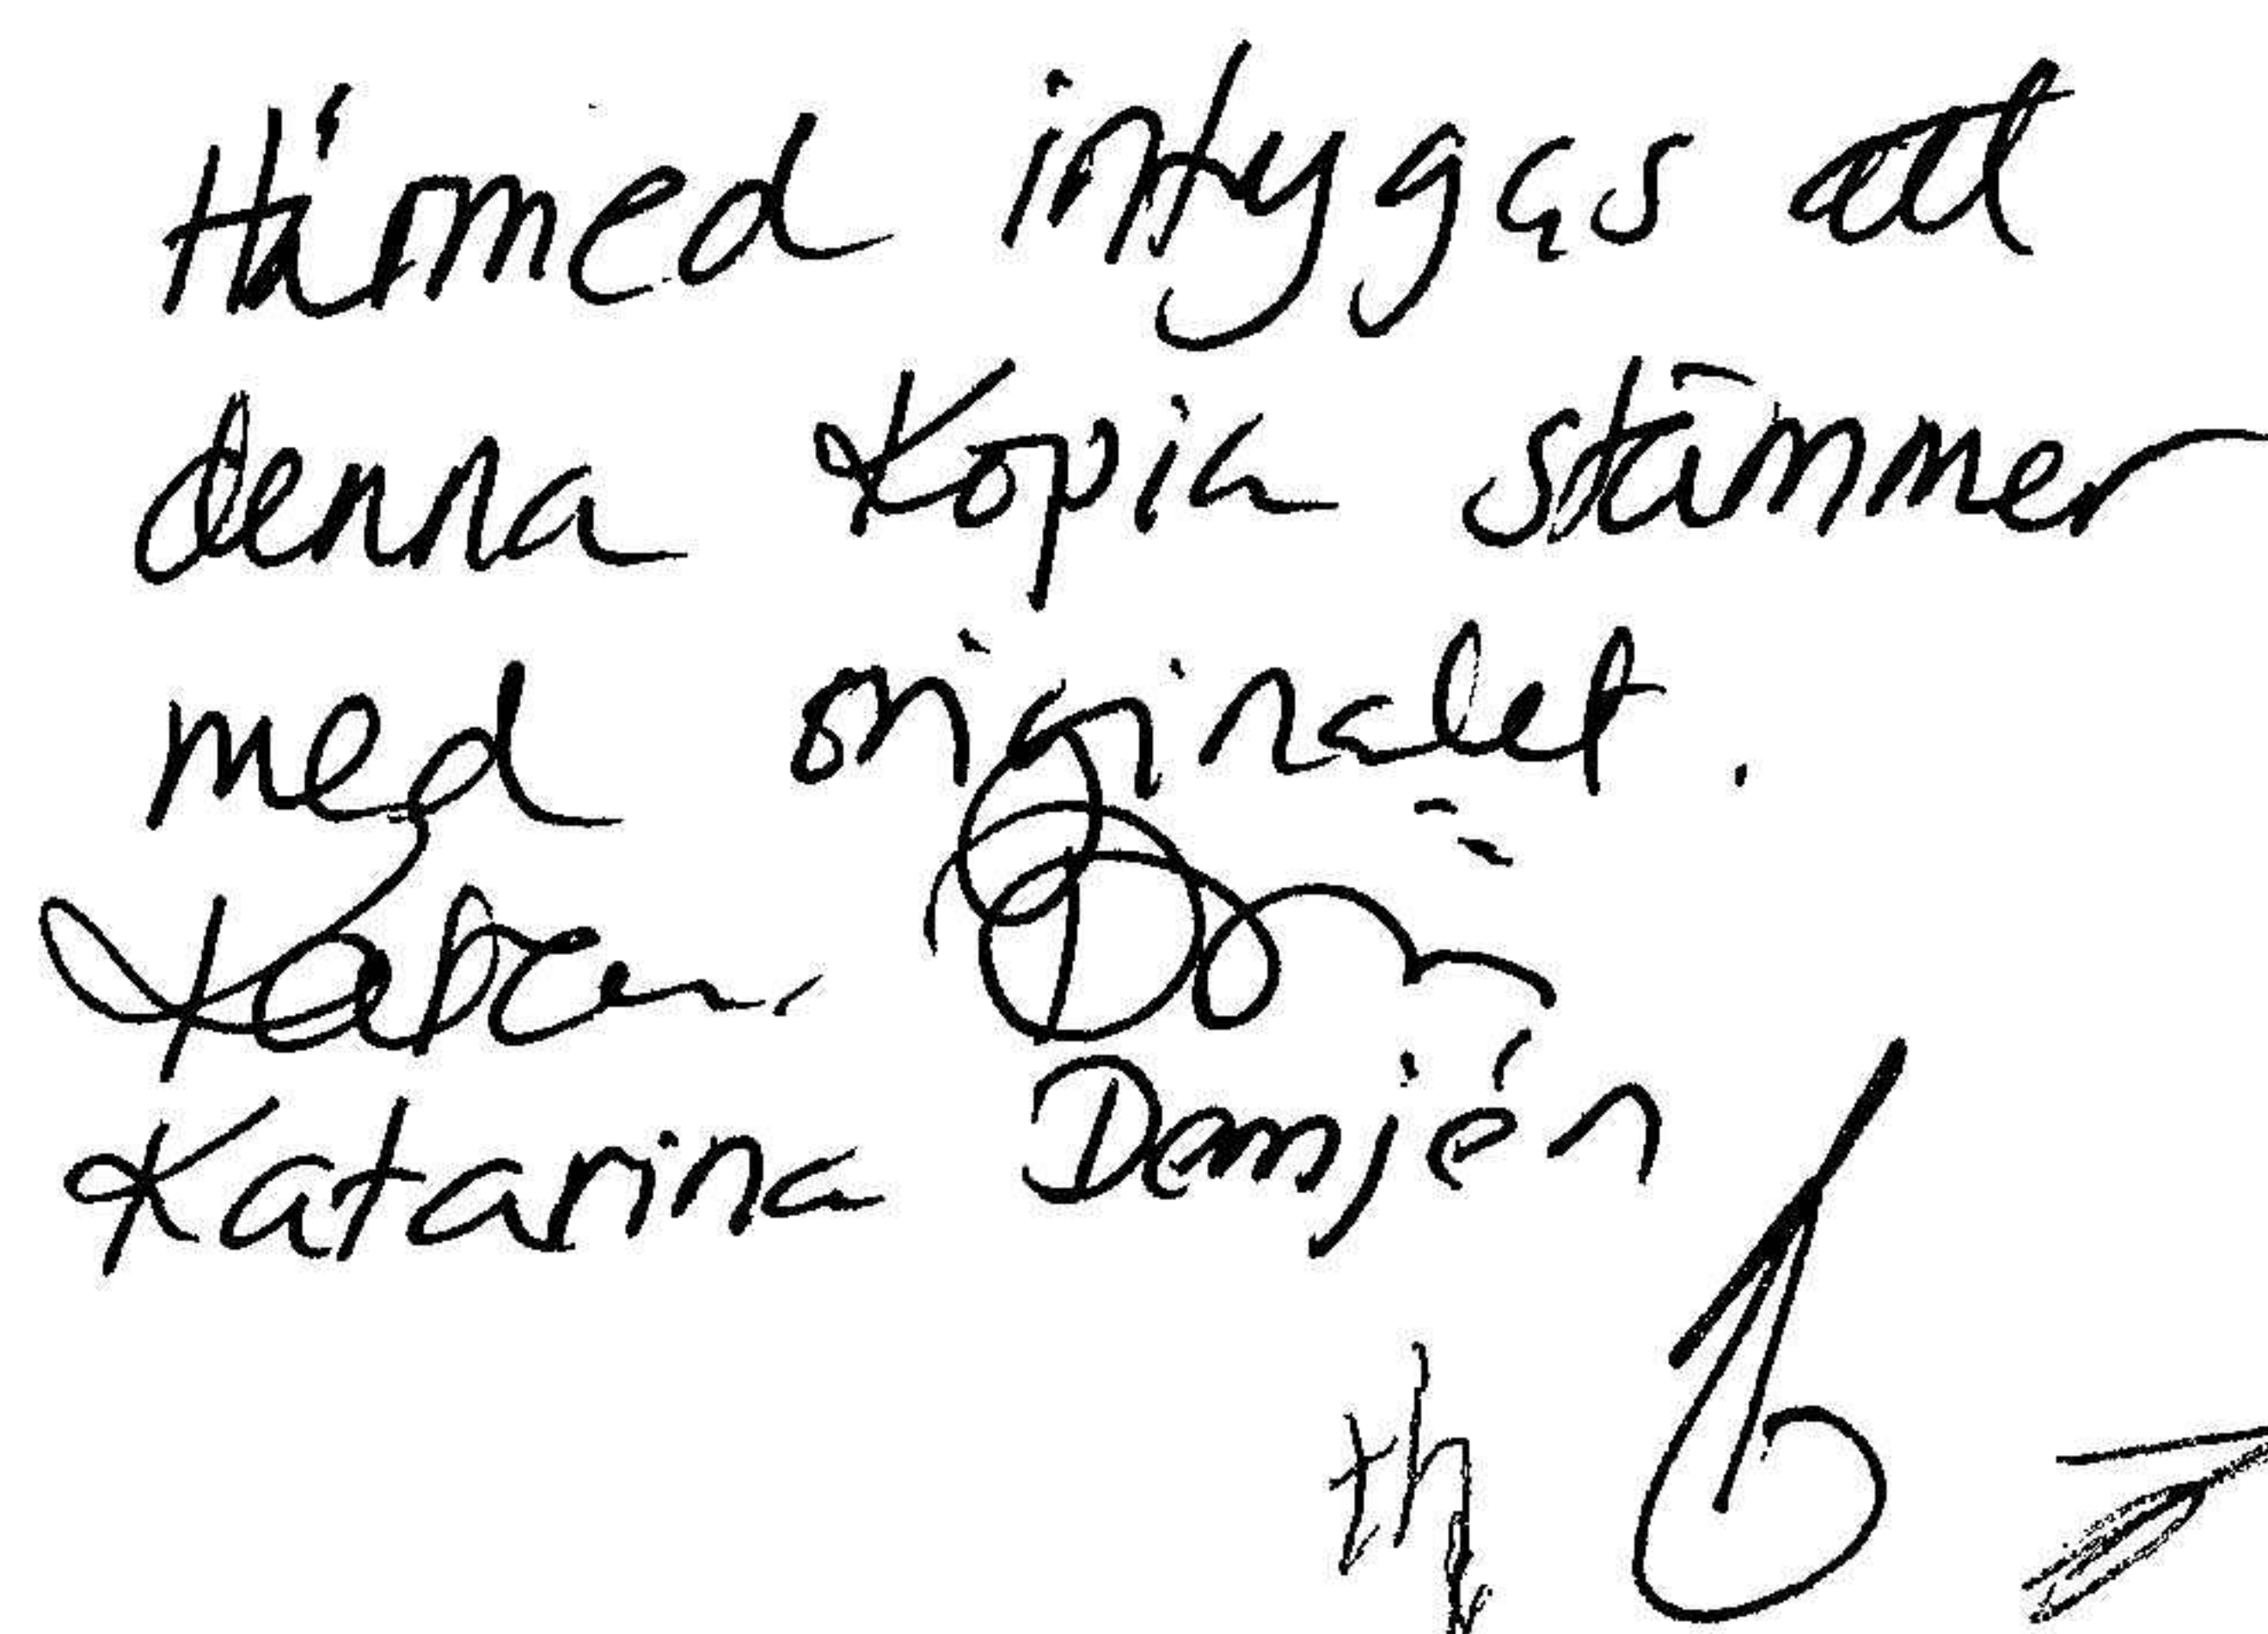 Härmed intygas att
denna Kopia stämmer
med originalet.
Katarina Demjén